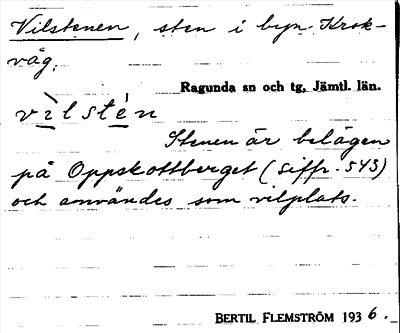 Vilstenen, sten i byn Krok-
våg.
Ragunda sn och tg, Jämtl. län.
vìlstén
Stenen är belägen
på Oppskottberget (siffr. 543)
och användes som vilplats.
BERTIL FLEMSTRÖM 1936.